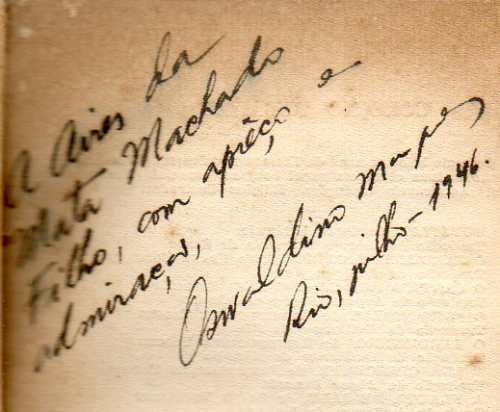 A Aires da
Mata Machado
Filho, com aprêço e
admiração,
Oswaldino Marques
Rio, julho - 1946.